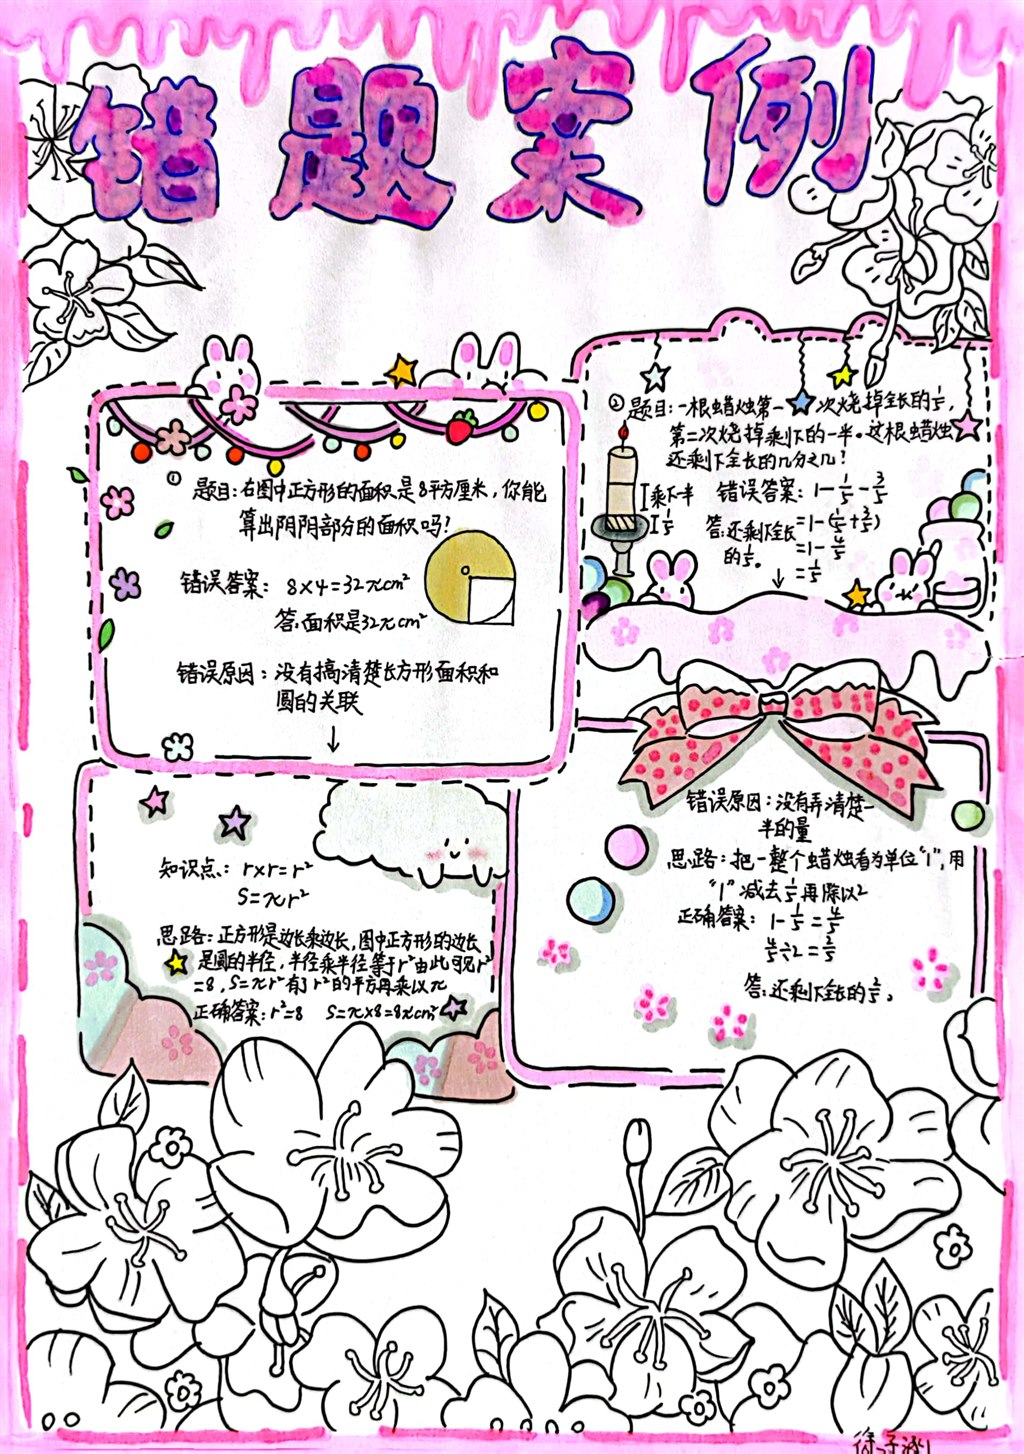 错题案例
① 题目:右图中正方形的面积是8平方厘米,你能
算出阴阴部分的面积吗?
错误答案: 8×4=32πcm²
答:面积是32πcm²
错误原因:没有搞清楚长方形面积和
圆的关联
↓
知识点: r×r=r²
S=πr²
思路:正方形是边长乘边长,图中正方形的边长
是圆的半径,半径乘半径等于r²由此可见r²
=8,S=πr²有了r²的平方再乘以π
正确答案:r²=8 S=π×8=8πcm²
② 题目:一根蜡烛第一次烧掉全长的1/5,
第二次烧掉剩下的一半。这根蜡烛
还剩下全长的几分之几?
错误答案: 1-1/5-3/5
=1-(1/5+3/5)
=1-4/5
=1/5
答:还剩下全长
的1/5。
↓
剩下一半
1/5
错误原因:没有弄清楚一
半的量
思路:把一整个蜡烛看为单位“1”,用
“1”减去1/5再除以2
正确答案: 1-1/5=4/5
4/5÷2=2/5
答:还剩下全长的2/5。